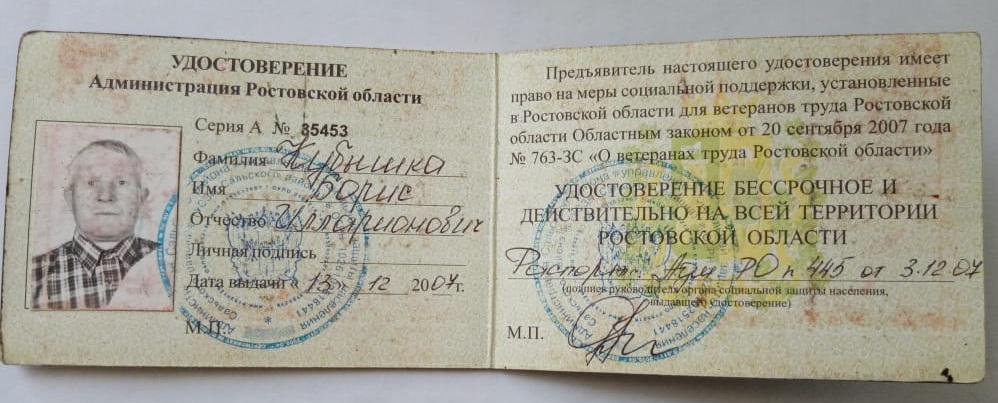 УДОСТОВЕРЕНИЕ
Администрация Ростовской области
Серия А № 85453
Фамилия Кубышка
Имя Борис
Отчество Илларионович
Личная подпись
Дата выдачи « 13 » 12 2007г.
М.П.
Предъявитель настоящего удостоверения имеет
право на меры социальной поддержки, установленные
в Ростовской области для ветеранов труда Ростовской
области Областным законом от 20 сентября 2007 года
№ 763-ЗС «О ветеранах труда Ростовской области»
УДОСТОВЕРЕНИЕ БЕССРОЧНОЕ И
ДЕЙСТВИТЕЛЬНО НА ВСЕЙ ТЕРРИТОРИИ
РОСТОВСКОЙ ОБЛАСТИ
Адм РО № 445 от 3.12.07
(подпись руководителя органа социальной защиты населения,
выдавшего удостоверение)
М.П.